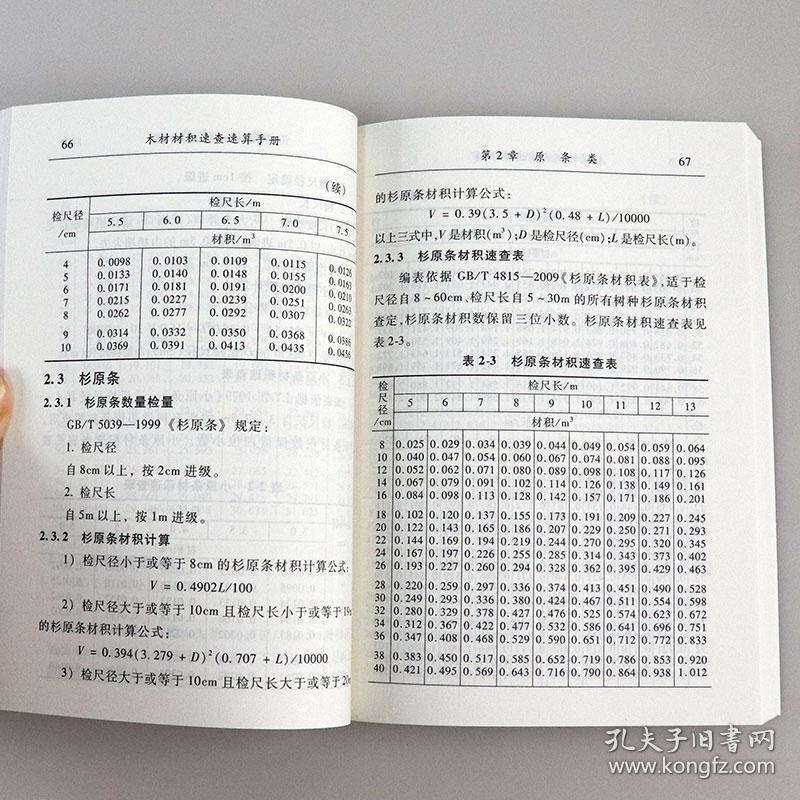 66 木材材积速查速算手册
（续）
检尺径 检尺长/m
/cm 5.5 6.0 6.5 7.0 7.5
材积/m³
4 0.0098 0.0103 0.0109 0.0115 0.0126
5 0.0133 0.0140 0.0148 0.0155 0.0163
6 0.0171 0.0181 0.0191 0.0200 0.0210
7 0.0215 0.0227 0.0239 0.0251 0.0263
8 0.0262 0.0277 0.0292 0.0307 0.0322
9 0.0314 0.0332 0.0350 0.0368 0.0386
10 0.0369 0.0391 0.0413 0.0435 0.0456
2.3 杉原条
2.3.1 杉原条数量检量
GB/T 5039—1999《杉原条》规定：
1. 检尺径
自8cm以上，按2cm进级。
2. 检尺长
自5m以上，按1m进级。
2.3.2 杉原条材积计算
1）检尺径小于或等于8cm的杉原条材积计算公式：
V = 0.4902L/100
2）检尺径大于或等于10cm且检尺长小于或等于19m
的杉原条材积计算公式：
V = 0.394(3.279 + D)²(0.707 + L)/10000
3）检尺径大于或等于10cm且检尺长大于或等于20m
第2章 原条类 67
的杉原条材积计算公式：
V = 0.39(3.5 + D)²(0.48 + L)/10000
以上三式中，V是材积(m³)；D是检尺径(cm)；L是检尺长(m)。
2.3.3 杉原条材积速查表
编表依据GB/T 4815—2009《杉原条材积表》，适于检
尺径自8~60cm、检尺长自5~30m的所有树种杉原条材积
查定，杉原条材积数保留三位小数。杉原条材积速查表见
表2-3。
表2-3 杉原条材积速查表
检尺径/cm 检尺长/m
5 6 7 8 9 10 11 12 13
材积/m³
8 0.025 0.029 0.034 0.039 0.044 0.049 0.054 0.059 0.064
10 0.040 0.047 0.054 0.060 0.067 0.074 0.081 0.088 0.095
12 0.052 0.062 0.071 0.080 0.089 0.098 0.108 0.117 0.126
14 0.067 0.079 0.091 0.102 0.114 0.126 0.138 0.149 0.161
16 0.084 0.098 0.113 0.128 0.142 0.157 0.171 0.186 0.201
18 0.102 0.120 0.137 0.155 0.173 0.191 0.209 0.227 0.245
20 0.122 0.143 0.165 0.186 0.207 0.229 0.250 0.271 0.293
22 0.144 0.169 0.194 0.219 0.244 0.270 0.295 0.320 0.345
24 0.167 0.197 0.226 0.255 0.285 0.314 0.343 0.373 0.402
26 0.193 0.227 0.260 0.294 0.328 0.362 0.395 0.429 0.463
28 0.220 0.259 0.297 0.336 0.374 0.413 0.451 0.490 0.528
30 0.249 0.293 0.336 0.380 0.424 0.467 0.511 0.554 0.598
32 0.280 0.329 0.378 0.427 0.476 0.525 0.574 0.623 0.672
34 0.312 0.367 0.422 0.477 0.532 0.586 0.641 0.696 0.751
36 0.347 0.408 0.468 0.529 0.590 0.651 0.712 0.772 0.833
38 0.383 0.450 0.517 0.585 0.652 0.719 0.786 0.853 0.920
40 0.421 0.495 0.569 0.643 0.716 0.790 0.864 0.938 1.012
孔夫子旧书网
www.kongfz.com